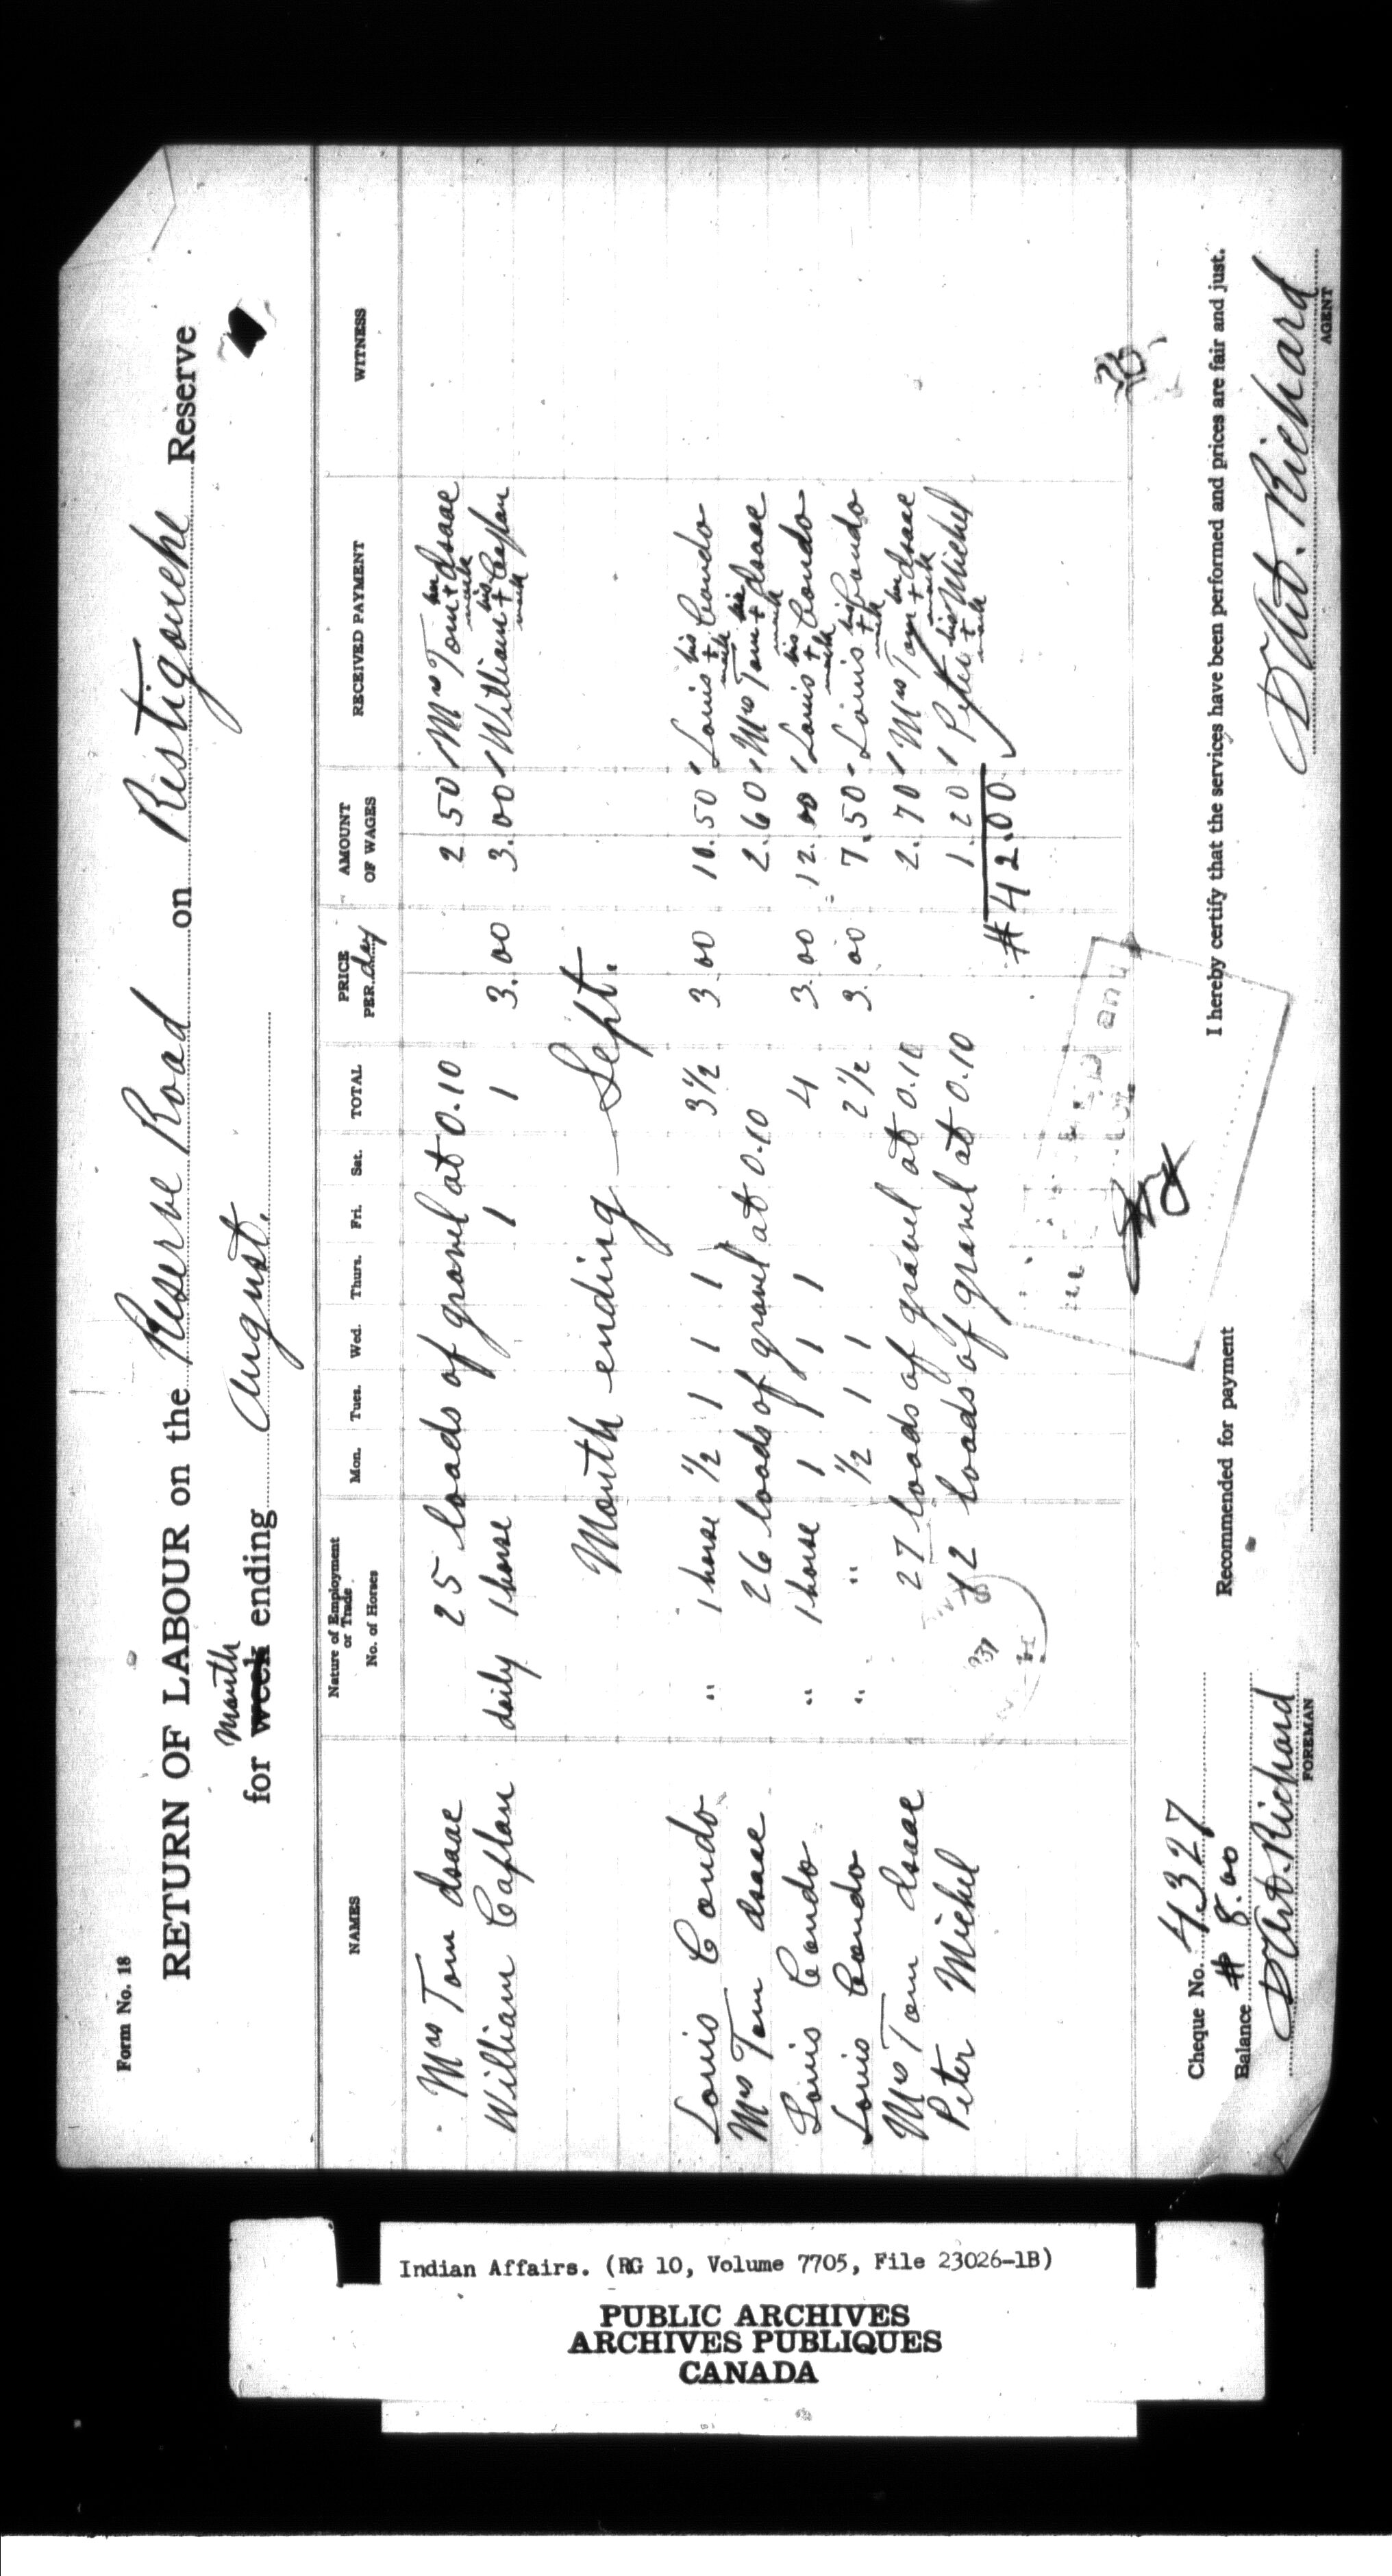 Form No. 18
RETURN OF LABOUR on the Reserve Road on Restigouche Reserve
month
for week ending August.
NAMES Nature of Employment or Trade No. of Horses Mon. Tues. Wed. Thurs. Fri. Sat. TOTAL PRICE PER day AMOUNT OF WAGES RECEIVED PAYMENT WITNESS
Mrs Tom Isaac 25 loads of gravel at 0.10 2.50 Mrs Tom her + mark Isaac
William Caplan daily 1 horse 1 1 3.00 3.00 William his + mark Caplan
Month ending Sept.
Louis Condo " 1 horse 1/2 1 1 1 3 1/2 3 00 10.50 Louis his + mark Condo
Mrs Tom Isaac 26 loads of gravel at 0.10 2.60 Mrs Tom his + mark Isaac
Louis Condo " 1 horse 1 1 1 1 4 3.00 12.00 Louis his + mark Condo
Louis Condo " " 1/2 1 1 2 1/2 3.00 7.50 Louis his + mark Condo
Mrs Tom Isaac 27 loads of gravel at 0.10 2.70 Mrs Tom her + mark Isaac
Peter Michel 12 loads of gravel at 0.10 1.20 Peter his + mark Michel
$42.00
Cheque No. 4327
Balance $ 8.00
Recommended for payment
I hereby certify that the services have been performed and prices are fair and just.
Richard
FOREMAN
Richard
AGENT
Indian Affairs. (RG 10, Volume 7705, File 23026-1B)
PUBLIC ARCHIVES
ARCHIVES PUBLIQUES
CANADA